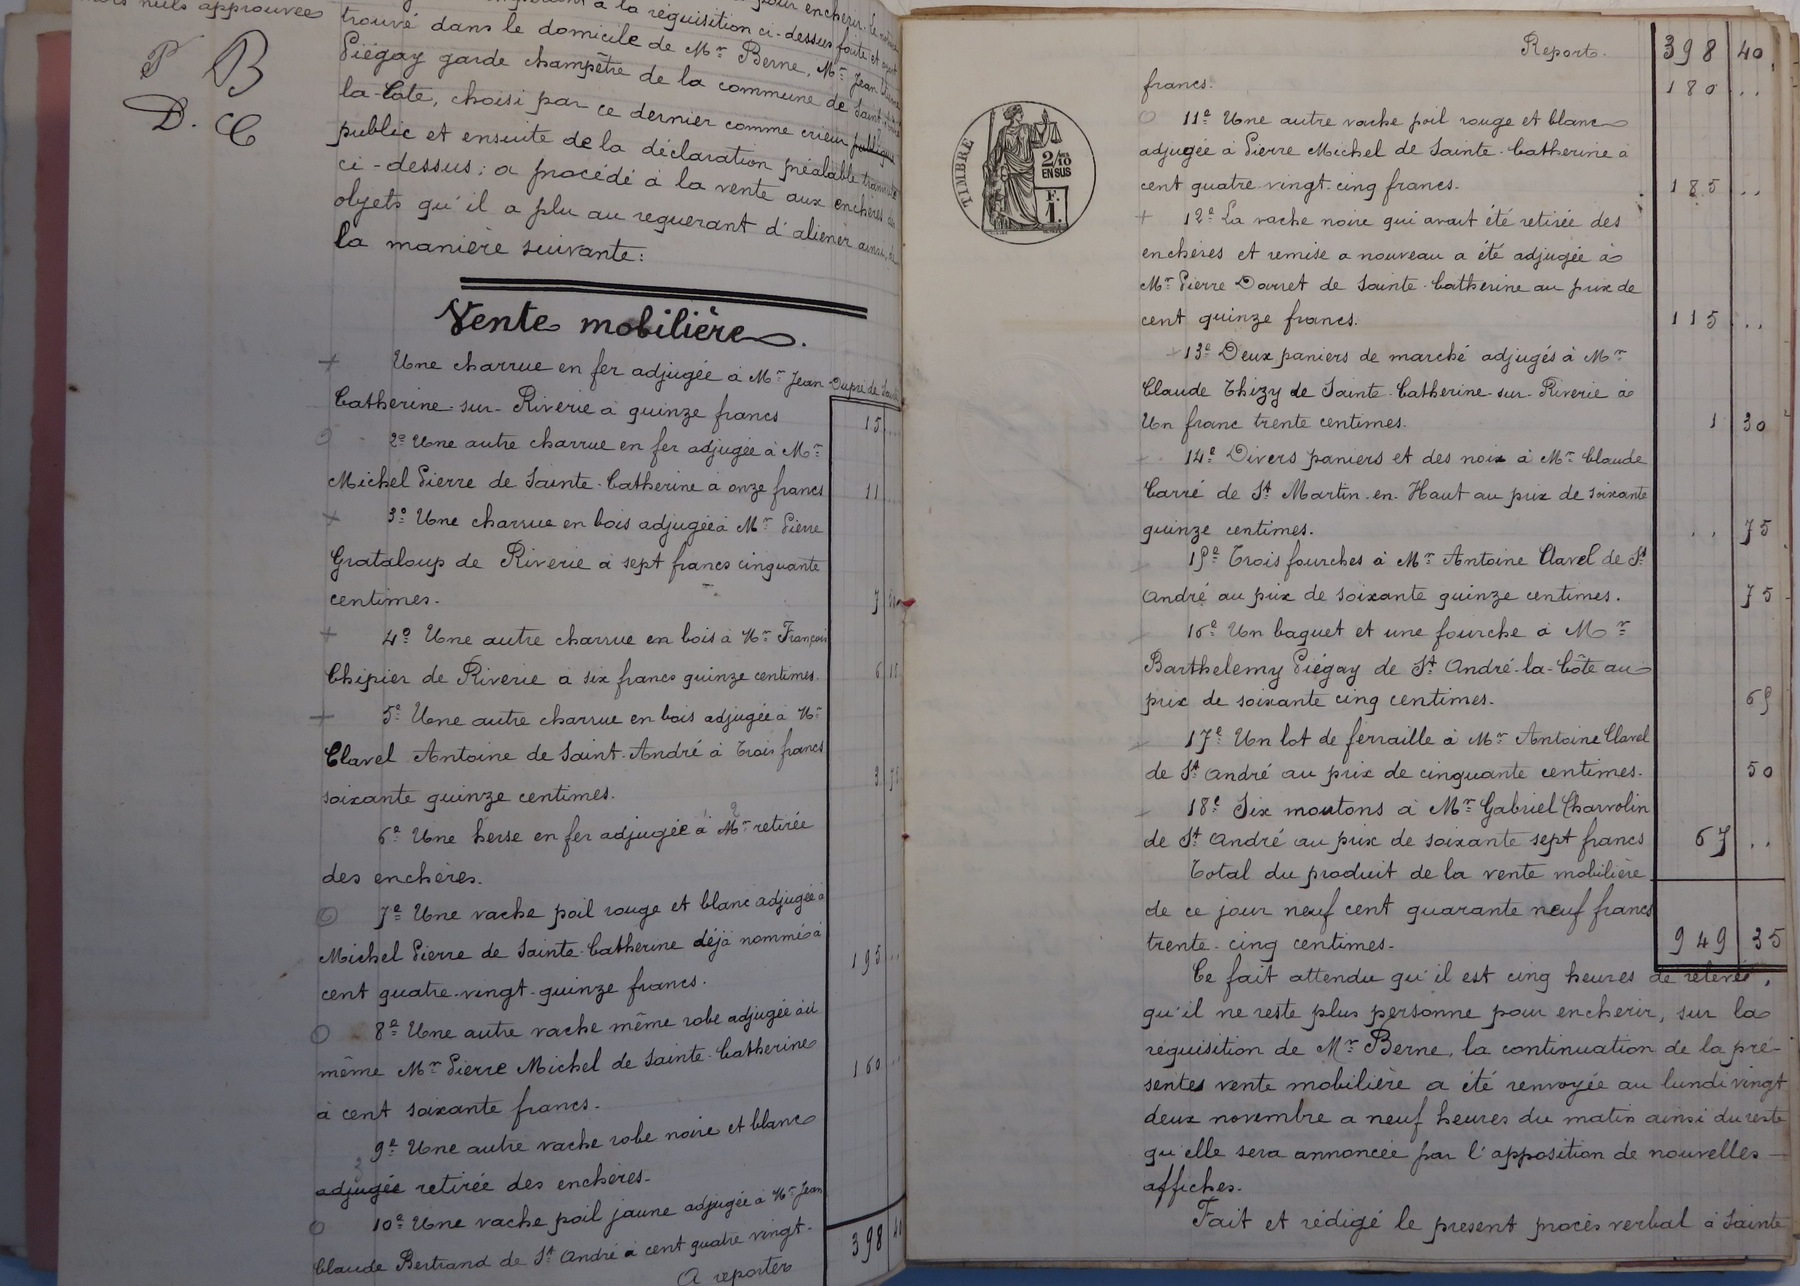 mots nuls approuvés
P B
D. C
pour enchérir. le notaire
à la réquisition ci-dessus faite et ayant
trouvé dans le domicile de Mr Berne, Mr Jean
Piégay garde champêtre de la commune de Saint André
la-Côte, choisi par ce dernier comme crieur publique
public et ensuite de la déclaration préalable transcrite
ci-dessus; a procédé à la vente aux enchères des
objets qu'il a plu au requerant d'aliéner ainsi, de
la manière suivante:
Vente mobilière.
+ Une charrue en fer adjugée à Mr Jean Dupré de Sainte
Catherine-sur-Riverie à quinze francs 15 ..
2º Une autre charrue en fer adjugée à Mr
Michel Pierre de Sainte-Catherine à onze francs 11 ..
+ 3º Une charrue en bois adjugée à Mr Pierre
Grataloup de Riverie à sept francs cinquante
centimes. 7 50
+ 4º Une autre charrue en bois à Mr François
Chipier de Riverie à six francs quinze centimes. 6 15
+ 5º Une autre charrue en bois adjugée à Mr
Clavel Antoine de Saint-André à trois francs
soixante quinze centimes. 3 75
6º Une herse en fer adjugée à Mr retirée
des enchères.
7º Une vache poil rouge et blanc adjugée à
Michel Pierre de Sainte-Catherine déjà nommé à
cent quatre-vingt-quinze francs. 195 ..
8º Une autre vache même robe adjugée au
même Mr Pierre Michel de Sainte-Catherine
à cent soixante francs. 160 ..
9º Une autre vache robe noire et blanc
adjugée retirée des enchères.
10º Une vache poil jaune adjugée à Mr Jean
Claude Bertrand de St André à cent quatre vingt-
A reporter 398 40
Report. 398 40
francs. 180 ..
TIMBRE
2/10
EN SUS
F.
1.
11º Une autre vache poil rouge et blanc
adjugée à Pierre Michel de Sainte-Catherine à
cent quatre-vingt-cinq francs. 185 ..
+ 12º La vache noire qui avait été retirée des
enchères et remise a nouveau a été adjugée à
Mr Pierre Darret de Sainte-Catherine au prix de
cent quinze francs. 115 ..
13º Deux paniers de marché adjugés à Mr
Claude Thizy de Sainte-Catherine-sur-Riverie à
Un franc trente centimes. 1 30
14º Divers paniers et des noix à Mr Claude
Carré de St Martin-en-Haut au prix de soixante
quinze centimes. .. 75
15º Trois fourches à Mr Antoine Clavel de St
André au prix de soixante quinze centimes. 75
16º Un baquet et une fourche à Mr
Barthelemy Piégay de St André-la-Côte au
prix de soixante cinq centimes. 65
17º Un lot de ferraille à Mr Antoine Clavel
de St André au prix de cinquante centimes. 50
18º Six moutons à Mr Gabriel Charvolin
de St André au prix de soixante sept francs 67 ..
Total du produit de la vente mobilière
de ce jour neuf cent quarante neuf francs
trente-cinq centimes. 949 35
Ce fait attendu qu'il est cinq heures de relevée,
qu'il ne reste plus personne pour enchérir, sur la
réquisition de Mr Berne, la continuation de la pré-
sente vente mobilière a été renvoyée au lundi vingt
deux novembre a neuf heures du matin ainsi du reste
qu'elle sera annoncée par l'apposition de nouvelles
affiches.
Fait et rédigé le present procès verbal à Sainte